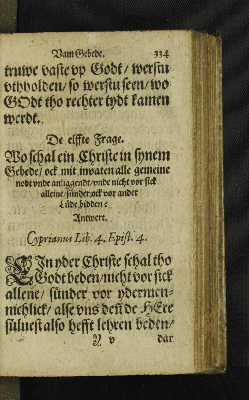 Vam Gebede. 334
truwe vaste vp Godt/ werstu
vthholden/ so werstu seen/ wo
GOdt tho rechter tydt kamen
werdt.
De elffte Frage.
Wo schal ein Christe in synem
Gebede/ ock mit invaten alle gemeine
nodt vnde anliggendt/ vnde nicht vor sick
alleine/ sünder ock vor ander
Lüde bidden?
Antwert.
Cyprianus Lib. 4. Epist. 4.
EIn yder Christe schal tho
Godt beden/ nicht vor sick
allene/ sünder vor ydermen-
nichlick/ alse vns den de HEre
sülvest also hefft lehren beden/
v dar